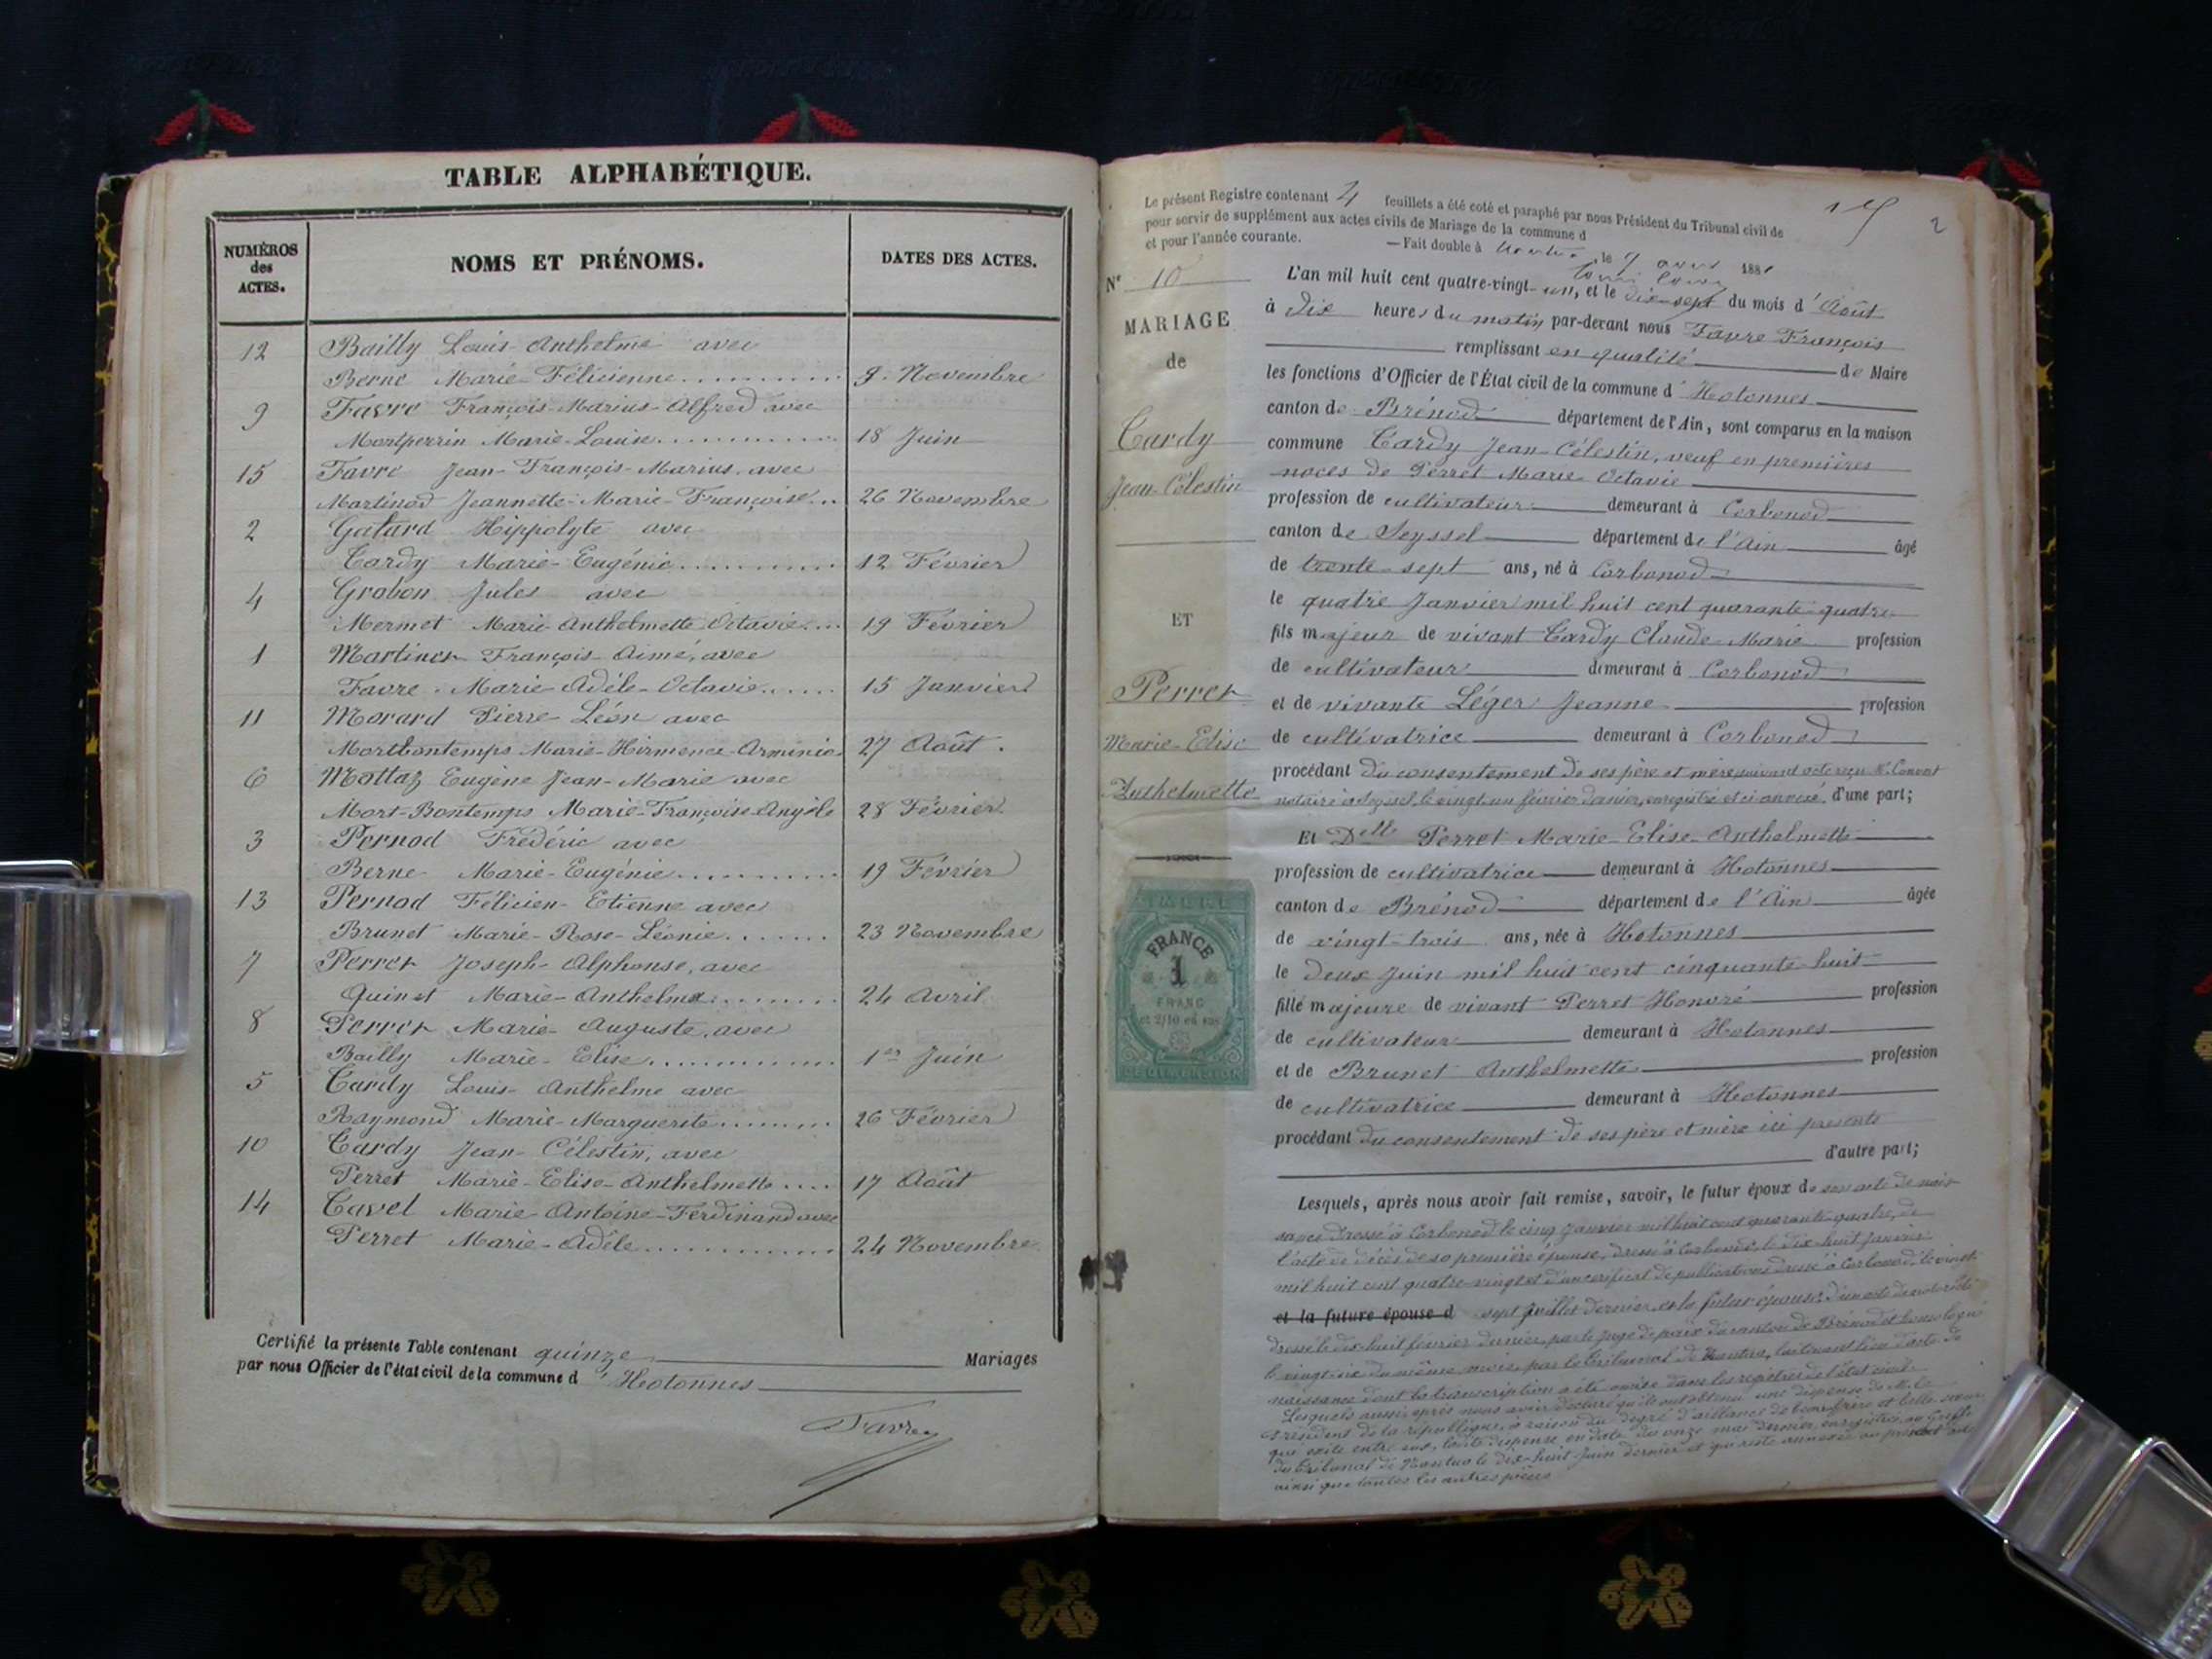 TABLE ALPHABÉTIQUE.
NUMÉROS des ACTES.
NOMS ET PRÉNOMS.
DATES DES ACTES.
12 Bailly Louis-Anthelme avec
Berne Marie-Félicienne 9 Novembre
9 Favre François-Marius-Alfred avec
Montperrin Marie-Louise 18 Juin
15 Favre Jean-François-Marius, avec
Martinod Jeannette-Marie-Françoise 26 Novembre
2 Galard Hippolyte avec
Tardy Marie-Eugénie 12 Février
4 Grabon Jules avec
Mermet Marie-Anthelmette Octavie 19 Février
1 Martiner François-Aimé, avec
Favre Marie Adèle-Octavie 15 Janvier
11 Morard Pierre-Léon avec
Mortbontemps Marie-Hirmence-Arminie 27 Août.
6 Mottaz Eugène Jean-Marie avec
Mort-Bontemps Marie-Françoise-Angèle 28 Février
3 Pernod Frédéric avec
Berne Marie-Eugénie 19 Février
13 Pernod Félicien-Etienne avec
Brunet Marie-Rose-Léonie 23 Novembre
7 Perret Joseph-Alphonse, avec
Quinet Marie-Anthelme 24 Avril
8 Perret Marie-Auguste, avec
Bailly Marie-Elise 1er Juin
5 Tardy Louis-Anthelme avec
Raymond Marie-Marguerite 26 Février
10 Tardy Jean-Célestin, avec
Perret Marie-Elise-Anthelmette 17 Août
14 Tavel Marie-Antoine-Ferdinand avec
Perret Marie-Adèle 24 Novembre
Certifié la présente Table contenant quinze Mariages
par nous Officier de l'état civil de la commune d'Hotonnes
Favre
15 2
Le présent Registre contenant 4 feuillets a été coté et paraphé par nous Président du Tribunal civil de
pour servir de supplément aux actes civils de Mariage de la commune d
et pour l'année courante. — Fait double à Nantua, le 9 1881
N° 10
MARIAGE
de
Tardy
Jean-Célestin
ET
Perret
Marie-Elise
Anthelmette
FRANCE
1
FRANC
et 2/10 en sus
L'an mil huit cent quatre-vingt-un, et le dix-sept du mois d'Août
à Dix heures du matin par-devant nous Favre François
remplissant en qualité de Maire
les fonctions d'Officier de l'État civil de la commune d'Hotonnes
canton de Brénod département de l'Ain, sont comparus en la maison
commune Tardy Jean-Célestin, veuf en premières
noces de Perret Marie Octavie
profession de cultivateur demeurant à Corbonod
canton de Seyssel département de l'Ain âgé
de trente-sept ans, né à Corbonod
le quatre Janvier mil huit cent quarante-quatre
fils majeur de vivant Tardy Claude-Marie profession
de cultivateur demeurant à Corbonod
et de vivante Léger Jeanne profession
de cultivatrice demeurant à Corbonod
procédant du consentement de ses père et mère suivant acte reçu Me
notaire à Seyssel, le vingt-un février dernier, enregistré et ci annexé, d'une part;
Et Delle Perret Marie-Elise-Anthelmette
profession de cultivatrice demeurant à Hotonnes
canton de Brénod département de l'Ain âgée
de vingt-trois ans, née à Hotonnes
le deux Juin mil huit cent cinquante-huit
fille majeure de vivant Perret Honoré profession
de cultivateur demeurant à Hotonnes
et de Brunet Anthelmette profession
de cultivatrice demeurant à Hotonnes
procédant du consentement de ses père et mère ici présents
d'autre part;
Lesquels, après nous avoir fait remise, savoir, le futur époux de son acte de nais-
sance dressé à Corbonod le cinq Janvier mil huit cent quarante-quatre, de
l'acte de décès de sa première épouse, dressé à Corbonod, le dix-huit janvier
mil huit cent quatre-vingt et d'un certificat de publications dressé à Corbonod, le vingt-
et la future épouse d sept Juillet dernier, et la future épouse, d'un acte de notoriété
dressé le dix-huit février dernier par le Juge de paix du canton de Brénod et homologué
le vingt-six du même mois, par le Tribunal de Nantua, lui tenant lieu d'acte de
naissance dont la transcription a été opérée dans les registres de l'état civil.
Lesquels aussi après nous avoir déclaré qu'ils ont obtenu une dispense de M. le
Président de la république, à raison du degré d'alliance de beau-frère et belle-sœur
qui existe entre eux, la dite dispense en date du onze mai dernier, enregistrée au Greffe
du Tribunal de Nantua le dix-huit Juin dernier et qui reste annexée au présent acte
ainsi que toutes les autres pièces